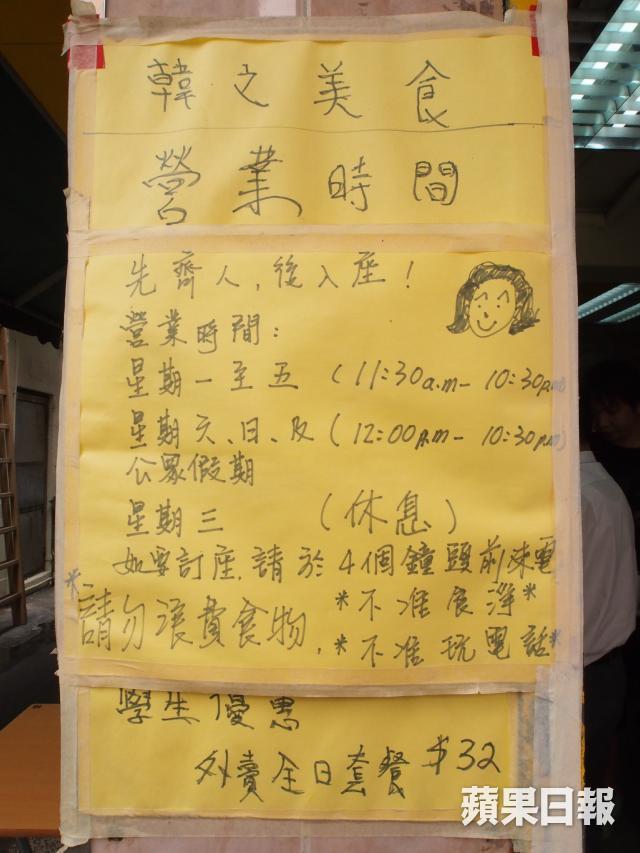 韓之美食
營業時間
先齊人,後入座!
營業時間:
星期一至五 (11:30a.m- 10:30p.m)
星期天、日、及 (12:00p.m- 10:30p.m)
公眾假期
星期三 (休息)
如要訂座,請於4個鐘頭前來電
*請勿浪費食物,
*不准食淨*
*不准玩電話*
學生優惠
外賣全日套餐 $32
蘋果日報